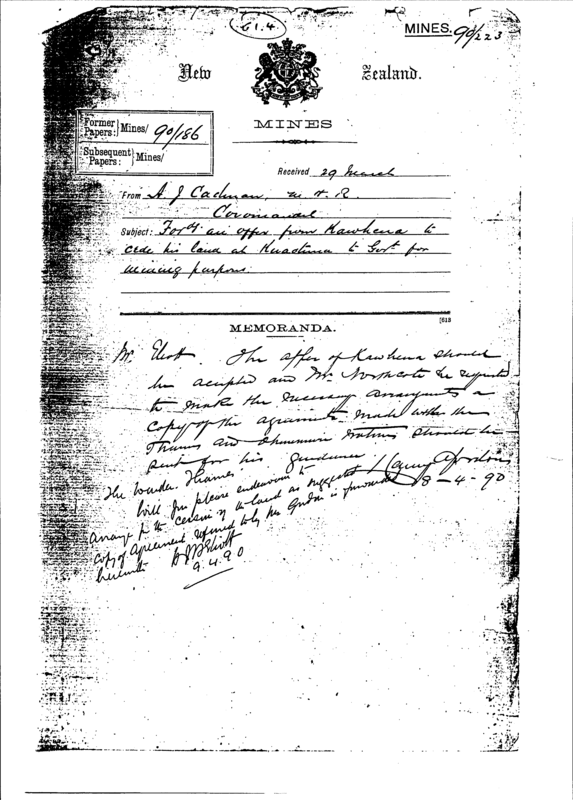 61.4
MINES. 90/223
New Zealand.
MINES
Former Papers: Mines/ 90/186
Subsequent Papers: Mines/
Received 29 March
From A J Cadman, M.H.R.
Coromandel
Subject: Fordg an offer from Kawhena to
cede his land at Kuaotunu to Govt for
mining purposes.
[613
MEMORANDA.
Mr. Eliott. The offer of Kawhena should
be accepted and Mr. Northcote be requested
to make the necessary arrangements a
copy of the agreements made with the
Thames and Ohinemuri natives should be
sent for his guidance.
Harry A Gordon
8-4-90
The Warden. Thames.
Will you please endeavour to
arrange for the cession of the land as suggested
copy of Agreement referred to by Mr Gordon is forwarded
herewith
H J H Eliott
9.4.90